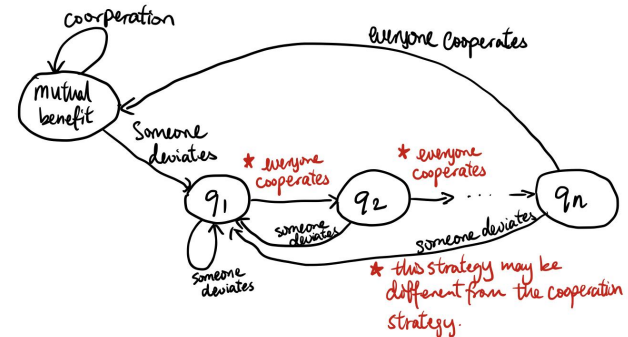 coorperation
everyone cooperates
mutual
benefit
Someone
deviates
* everyone
cooperates
* everyone
cooperates
q1
q2
...
qn
someone
deviates
someone deviates
someone
deviates
* this strategy may be
different from the cooperation
strategy.